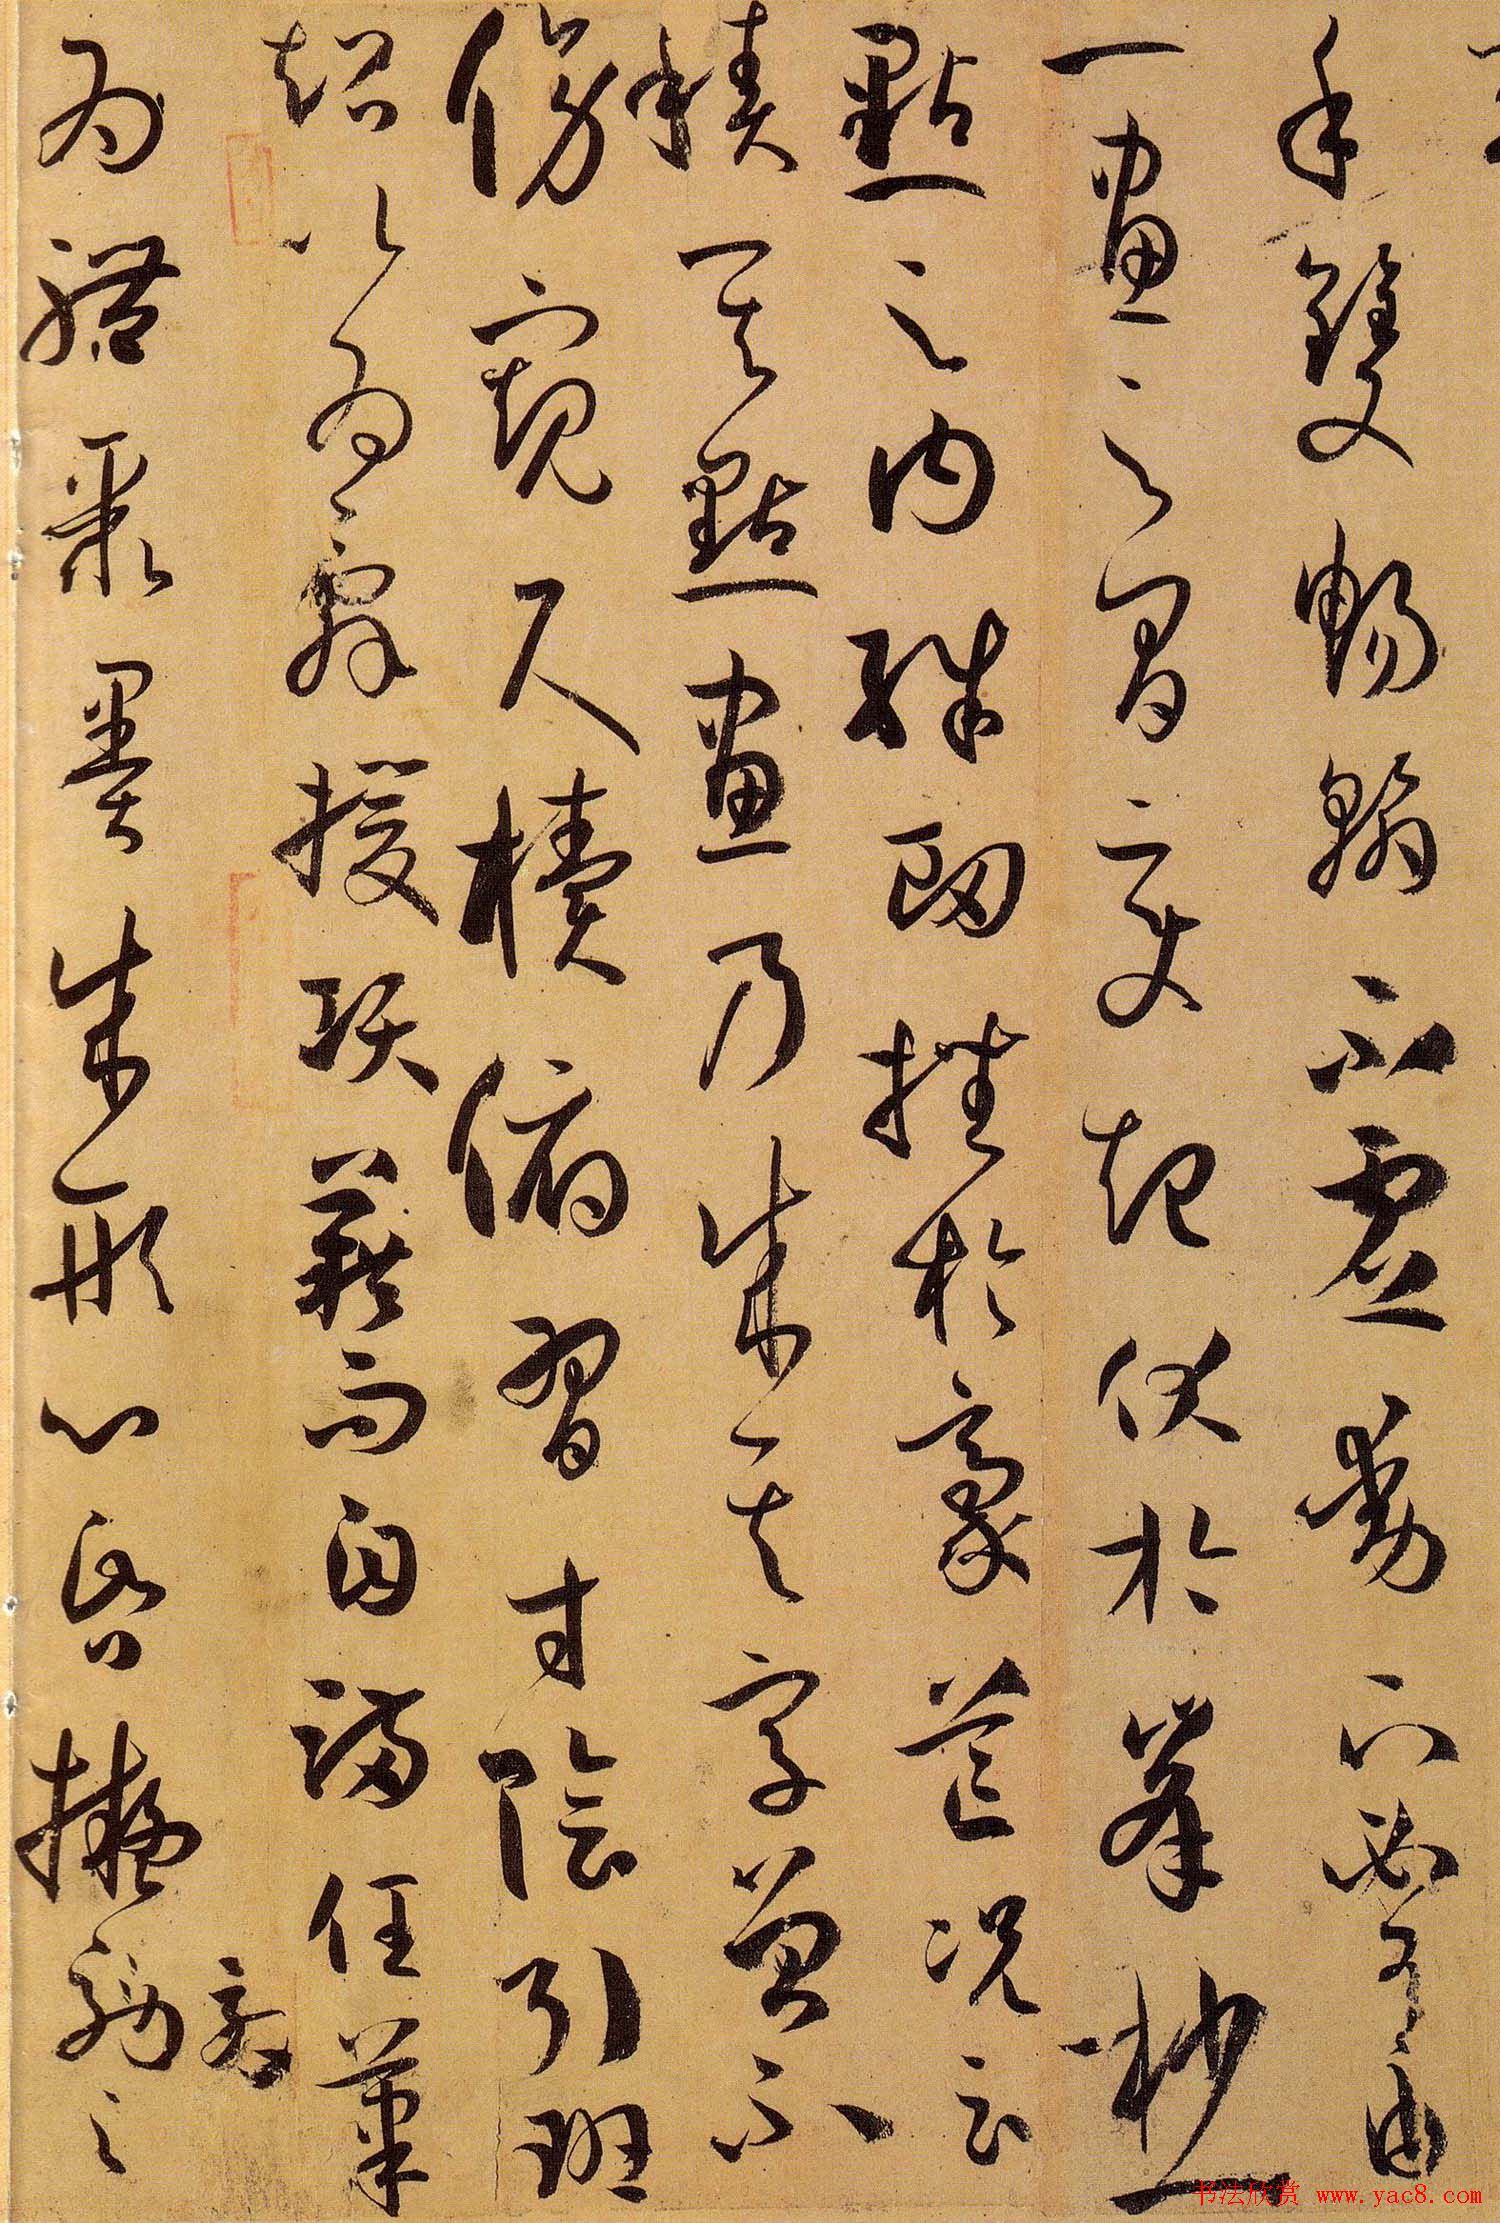 手雙暢翰不虛動下必有由
一畫之間變起伏於峯杪一
點之內殊衄挫於豪芒況云
積其點畫乃成其字曾不
傍窺尺牘俯習寸陰引班
超以為辭援項籍而自滿任筆
為體聚墨成形心昏擬効之
书法欣赏 www.yac8.com